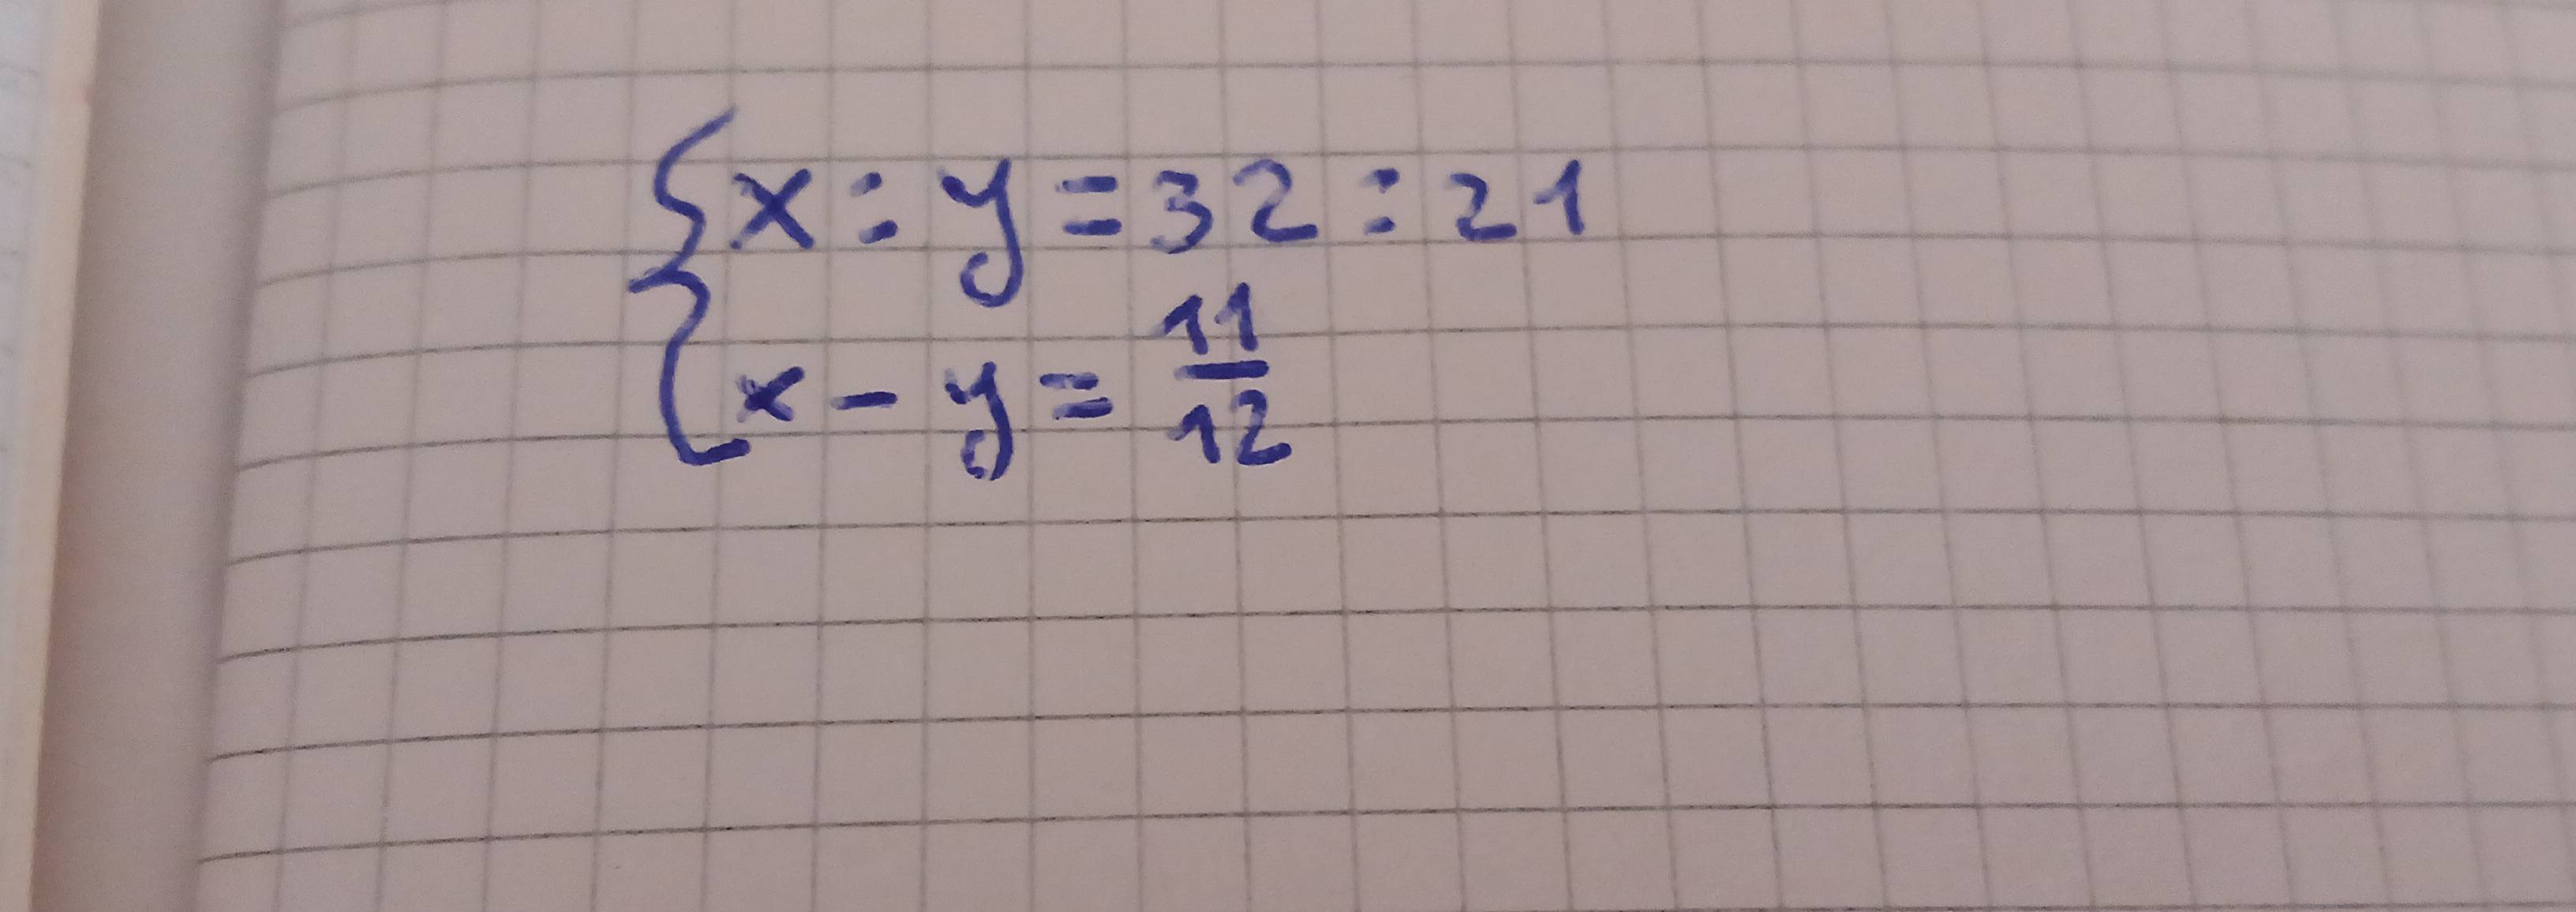 {x : y = 32 : 21
x - y = 11/12